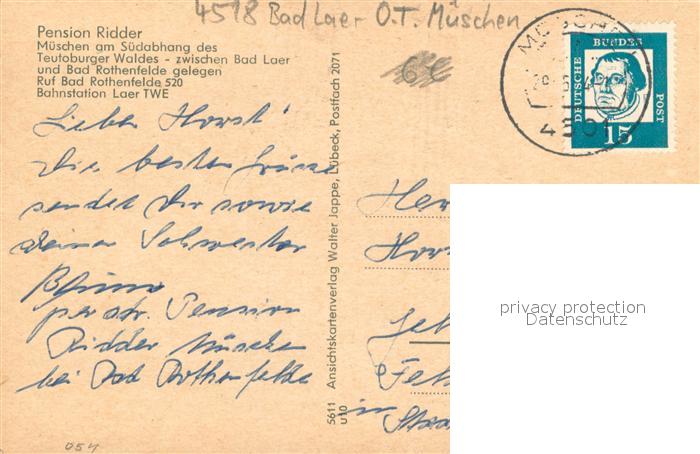 4518 Bad Laer O.T. Müschen
Pension Ridder
Müschen am Südabhang des
Teutoburger Waldes - zwischen Bad Laer
und Bad Rothenfelde gelegen
Ruf Bad Rothenfelde 520
Bahnstation Laer TWE
6€
DEUTSCHE BUNDES POST
15
4501
Lieber Horst!
Die besten Grüsse
sendet Dir sowie
deiner Schwester
Pension
Ridder Müschen
bei Bad Rothenfelde
5611 Ansichtskartenverlag Walter Jappe, Lübeck, Postfach 2071
u10
Her
Hor
in
privacy protection
Datenschutz
054